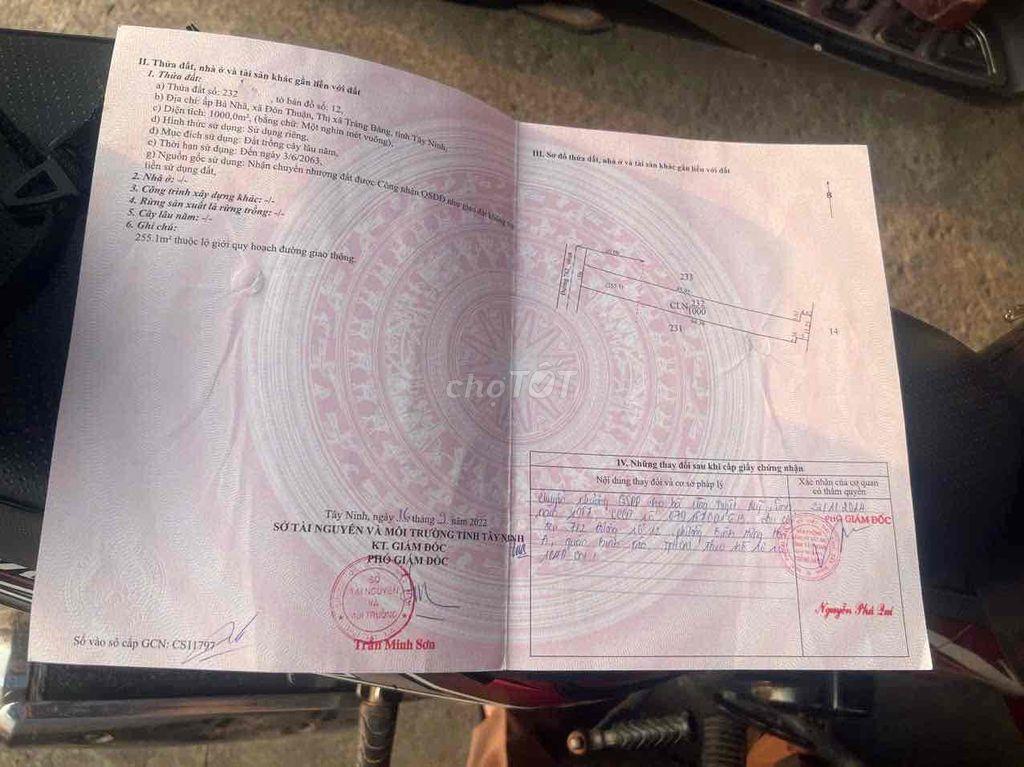 II. Thửa đất, nhà ở và tài sản khác gắn liền với đất
1. Thửa đất:
a) Thửa đất số: 232 , tờ bản đồ số: 12,
b) Địa chỉ: ấp Bà Nhã, xã Đôn Thuận, Thị xã Trảng Bàng, tỉnh Tây Ninh,
c) Diện tích: 1000,0m², (bằng chữ: Một nghìn mét vuông),
d) Hình thức sử dụng: Sử dụng riêng,
đ) Mục đích sử dụng: Đất trồng cây lâu năm,
e) Thời hạn sử dụng: Đến ngày 3/6/2063,
g) Nguồn gốc sử dụng: Nhận chuyển nhượng đất được Công nhận QSDĐ như giao đất không
tiền sử dụng đất,
2. Nhà ở: -/-
3. Công trình xây dựng khác: -/-
4. Rừng sản xuất là rừng trồng: -/-
5. Cây lâu năm: -/-
6. Ghi chú:
255.1m² thuộc lộ giới quy hoạch đường giao thông.
Tây Ninh, ngày 16 tháng 9 năm 2022
SỞ TÀI NGUYÊN VÀ MÔI TRƯỜNG TỈNH TÂY NINH
KT. GIÁM ĐỐC
PHÓ GIÁM ĐỐC
SỞ
TÀI NGUYÊN
VÀ
MÔI TRƯỜNG
Trần Minh Sơn
Số vào sổ cấp GCN: CS11797
III. Sơ đồ thửa đất, nhà ở và tài sản khác gắn liền với đất
B
Đường 782, nhựa
233
(255.1)
CLN 232
1000
231
14
chợTỐT
IV. Những thay đổi sau khi cấp giấy chứng nhận
Nội dung thay đổi và cơ sở pháp lý
Xác nhận của cơ quan
có thẩm quyền
PHÓ GIÁM ĐỐC
Nguyễn Phú Quí